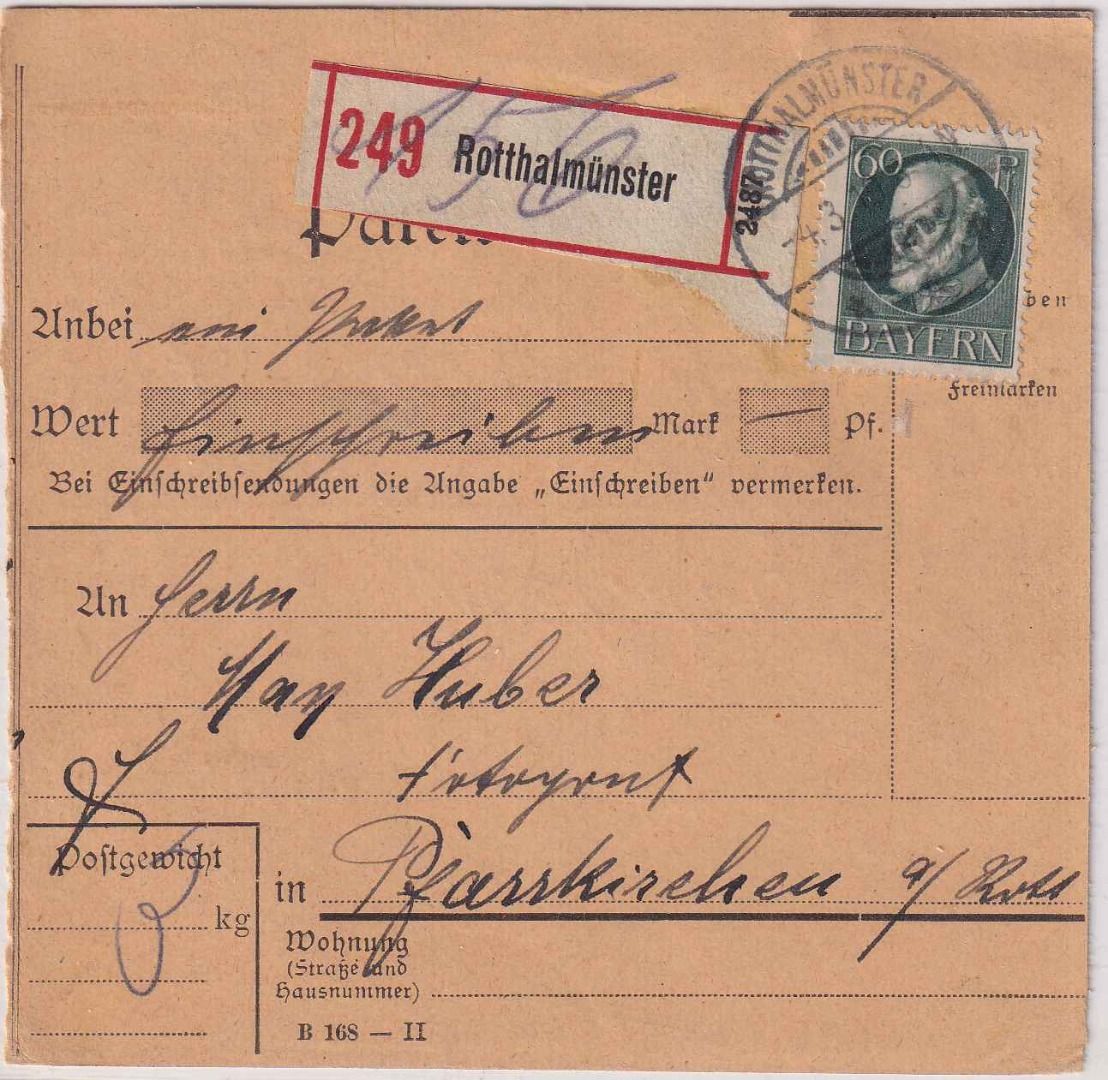 249 Rotthalmünster 2487
156
ROTTHALMÜNSTER
-4.3
60 Pf
BAYERN
ben
Freimarken
Anbei ein Paket
Wert Einschreiben Mark — Pf.
Bei Einschreibsendungen die Angabe „Einschreiben" vermerken.
An Herrn
Max Huber
Fotograf
Postgewicht
kg
in Pfarrkirchen a/ Rott
Wohnung
(Straße und
Hausnummer)
B 168 — II